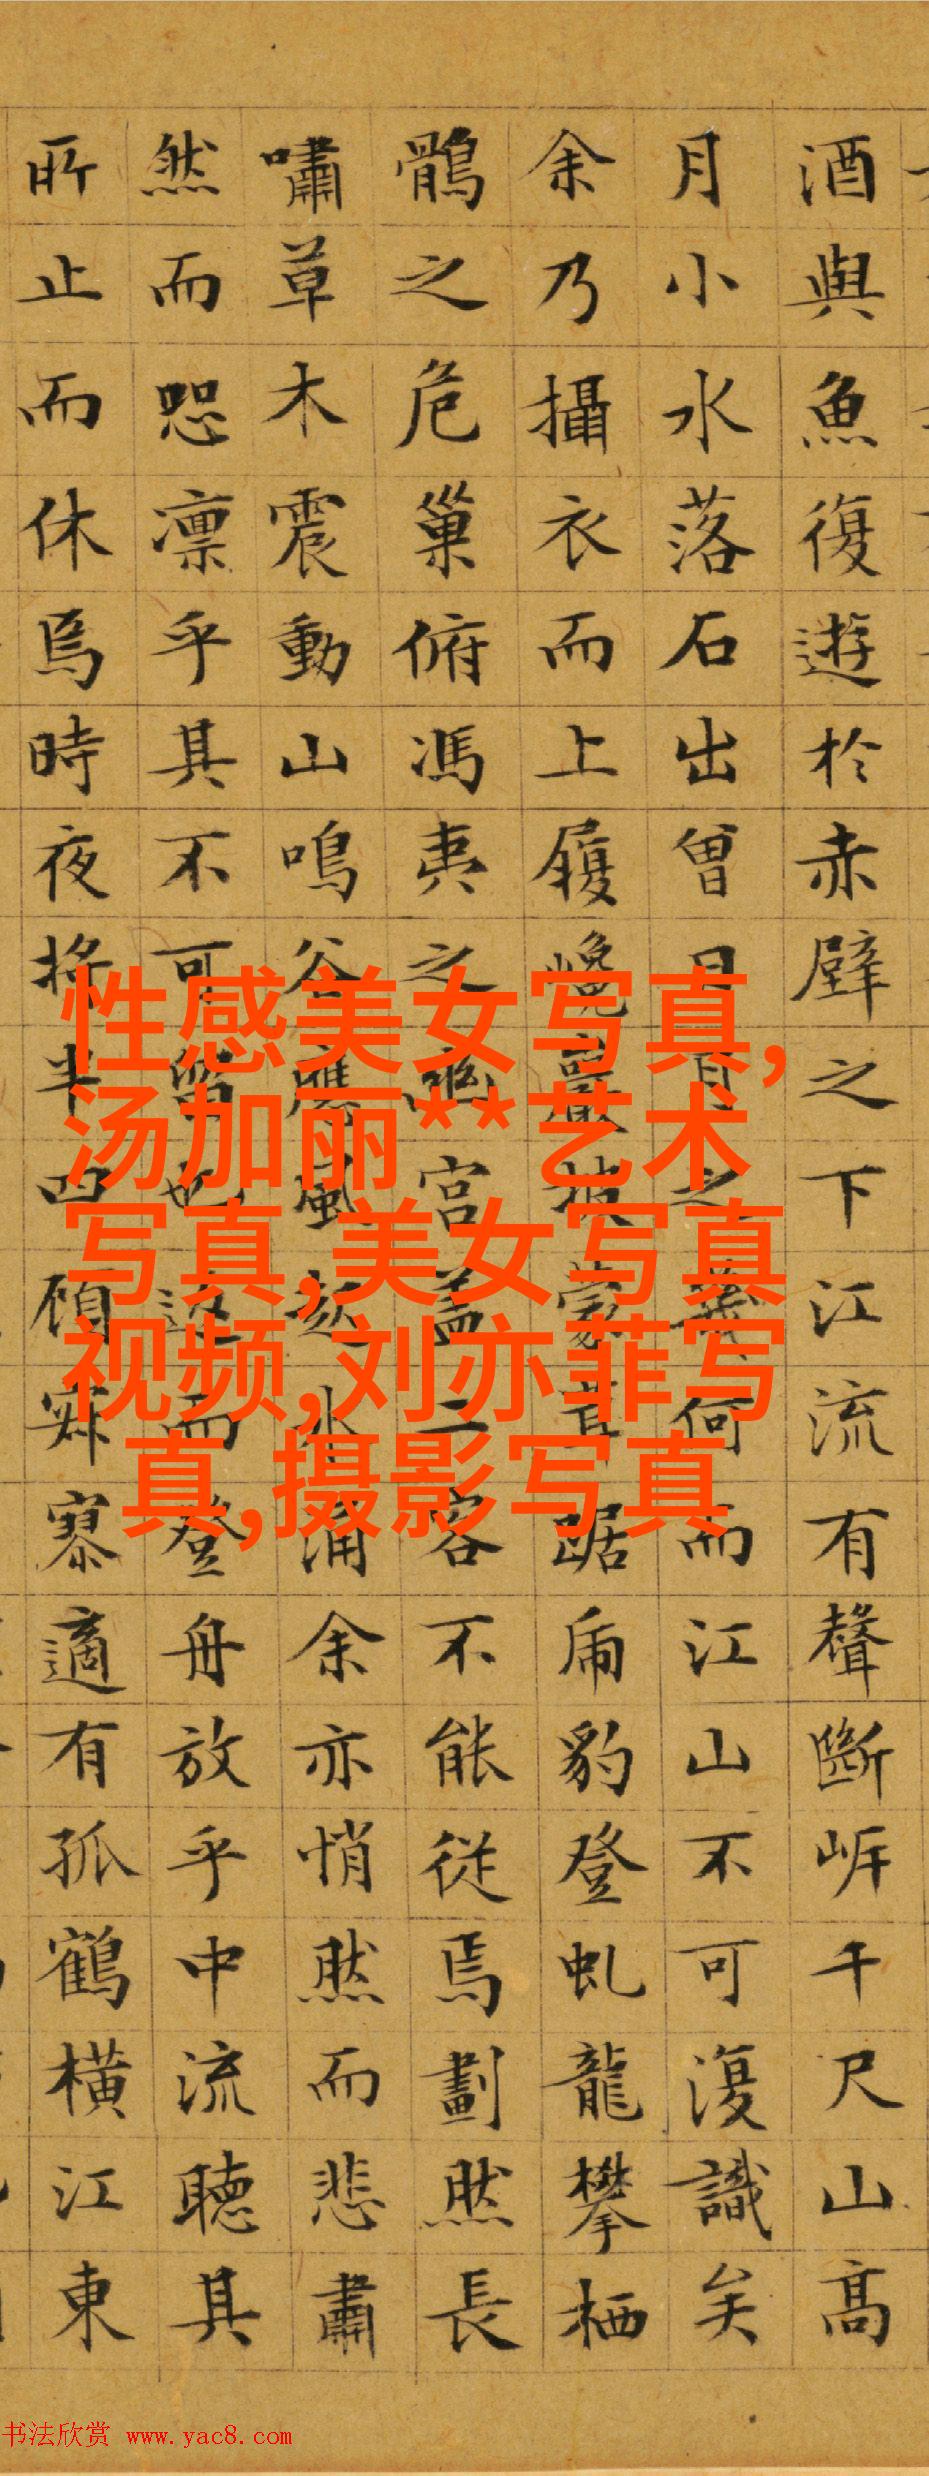 酒與魚復遊於赤壁之下江流有聲斷岸千尺山高
月小水落石出曾日月之幾何而江山不可復識矣
余乃攝衣而上履巉巖披蒙茸踞虎豹登虬龍攀栖
鶻之危巢俯馮夷之幽宮盖二客不能從焉劃然長
嘯草木震動山鳴谷應風起水涌余亦悄然而悲肅
然而恐凛乎其不可留也返而登舟放乎中流聽其
所止而休焉時夜將半四顧寂寥適有孤鶴橫江東
性感美女写真,
汤加丽**艺术
写真,美女写真
视频,刘亦菲写
真,摄影写真
书法欣赏 www.yac8.com